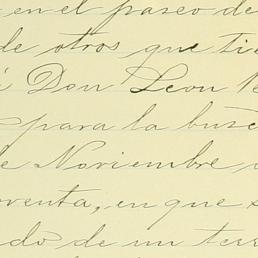 en el paseo de
de otros que tie
Don Leon
para la busc
e Noviembre
oventa, en que s
do de un ter